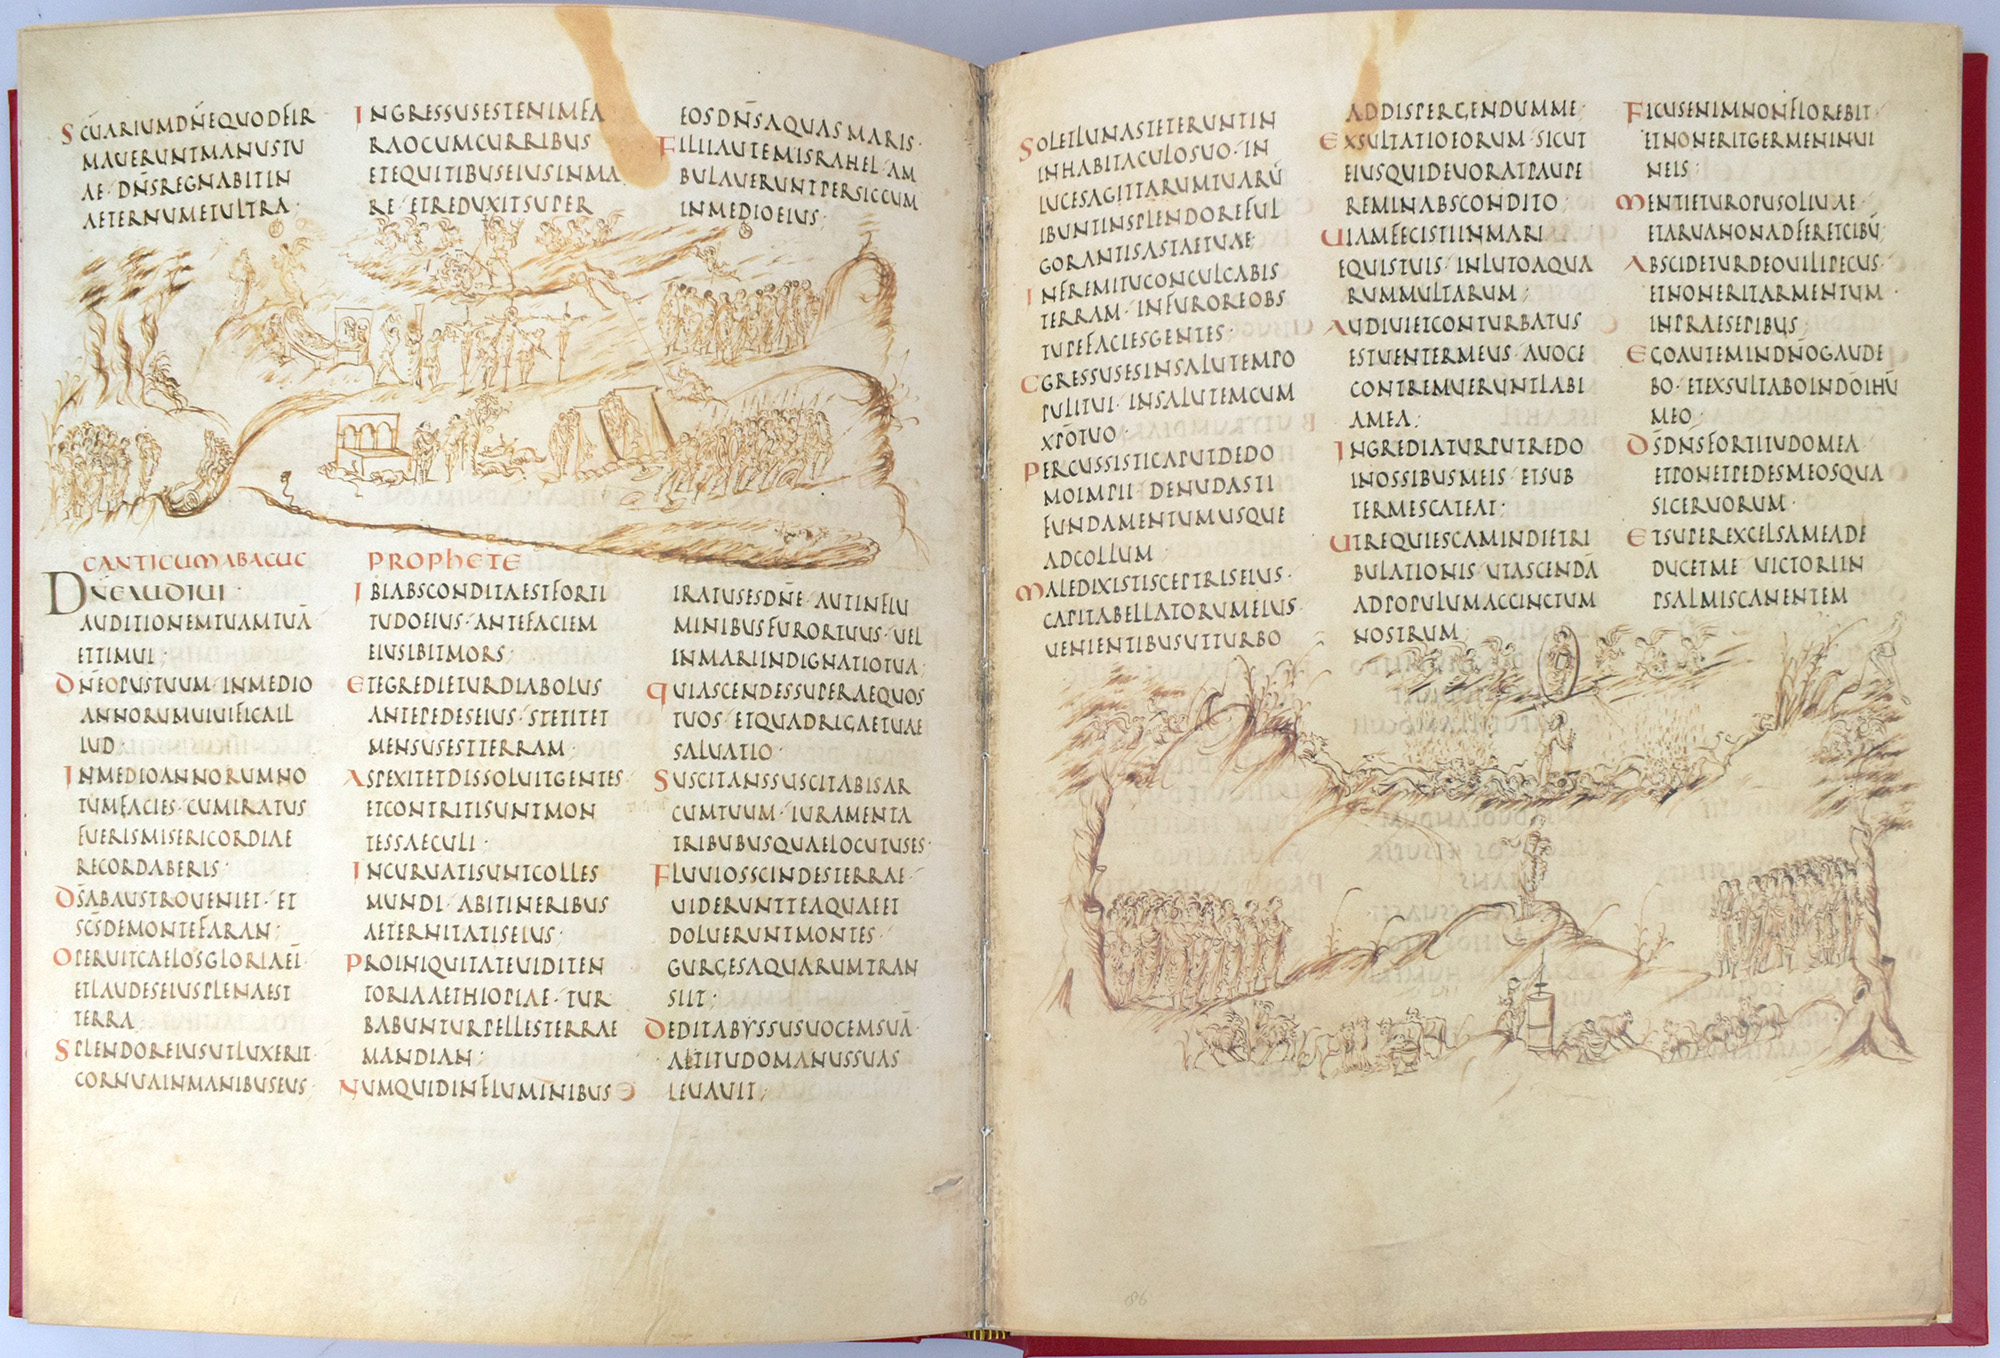 SCUARIUMDÑEQUODFIR
MAUERUNTMANUSTU
AE· DÑSREGNABITIN
AETERNUMETULTRA·
INGRESSUSESTENIMFA
RAOCUMCURRIBUS
ETEQUITIBUSEIUSINMA
RE· ETREDUXITSUPER
EOSDÑSAQUASMARIS·
FILIIAUTEMISRAHEL· AM
BULAUERUNTPERSICCUM
INMEDIOEIUS;
CANTICUMABACUC PROPHETE
DÑEAUDIUI·
AUDITIONEMTUAMTUĀ
ETTIMUI;
DÑEOPUSTUUM· INMEDIO
ANNORUMUIUIFICAIL
LUD·
INMEDIOANNORUMNO
TUMFACIES· CUMIRATUS
FUERISMISERICORDIAE
RECORDABERIS·
DS̄ABAUSTROUENIET· ET
SC̄SDEMONTEFARAN;
OPERUITCAELOSGLORIAEĪ·
ETLAUDESEIUSPLENAEST
TERRA·
SPLENDOREIUSUTLUXERIT·
CORNUAINMANIBUSEIUS·
IBIABSCONDITAESTFORTI
TUDOEIUS· ANTEFACIEM
EIUSIBITMORS;
ETEGREDIETURDIABOLUS
ANTEPEDESEIUS· STETITET
MENSUSESTTERRAM;
ASPEXITETDISSOLUITGENTES·
ETCONTRITISUNTMON
TESSAECULI;
INCURUATISUNTCOLLES
MUNDI· ABITINERIBUS
AETERNITATISEIUS;
PROINIQUITATEUIDITEN
TORIAAETHIOPIAE· TUR
BABUNTURPELLESTERRAE
MANDIAN;
NUMQUIDINFLUMINIBUS
IRATUSESDÑE· AUTINFLU
MINIBUSFURORTUUS· UEL
INMARIINDIGNATIOTUA;
QUIASCENDESSUPERAEQUOS
TUOS· ETQUADRIGAETUAE
SALUATIO·
SUSCITANSSUSCITABISAR
CUMTUUM· IURAMENTA
TRIBUBUSQUAELOCUTUSES·
FLUUIOSSCINDESTERRAE·
UIDERUNTTEAQUAEET
DOLUERUNTMONTES·
GURGESAQUARUMTRAN
SIIT;
DEDITABYSSUSUOCEMSUĀ·
ALTITUDOMANUSSUAS
LEUAUIT;
SOLETLUNASTETERUNTIN
INHABITACULOSUO· IN
LUCESAGITTARUMTUARŪ
IBUNTINSPLENDOREFUL
GORANTISASTAETUAE·
INFREMITUCONCULCABIS
TERRAM· INFUROREOBS
TUPEFACIESGENTES·
EGRESSUSESINSALUTEMPO
PULITUI· INSALUTEMCUM
XPŌTUO·
PERCUSSISTICAPUTDEDO
MOIMPII· DENUDASTI
FUNDAMENTUMUSQUE
ADCOLLUM
MALEDIXISTISCEPTRISEIUS·
CAPITABELLATORUMEIUS
UENIENTIBUSUTTURBO
ADDISPERGENDUMME·
EXSULTATIOEORUM· SICUT
EIUSQUIDEUORATPAUPE
REMINABSCONDITO;
UIAMFECISTIINMARI
EQUISTUIS· INLUTOAQUA
RUMMULTARUM;
AUDIUIETCONTURBATUS
ESTUENTERMEUS· AUOCE
CONTREMUERUNTLABI
AMEA;
INGREDIATURPUTREDO
INOSSIBUSMEIS· ETSUB
TERMESCATEAT;
UTREQUIESCAMINDIETRI
BULATIONIS· UTASCENDĀ
ADPOPULUMACCINCTUM
NOSTRUM;
FICUSENIMNONFLOREBIT·
ETNONERITGERMENINUI
NEIS;
MENTIETUROPUSOLIUAE·
ETARUANONADFERETCIBŪ;
ABSCIDETURDEOUILIPECUS·
ETNONERITARMENTUM
INPRAESEPIBUS;
EGOAUTEMINDÑOGAUDE
BO· ETEXSULTABOINDŌIHŪ
MEO;
DS̄DN̄SFORTITUDOMEA
ETPONETPEDESMEOSQUA
SICERUORUM·
ETSUPEREXCELSAMEADE
DUCETME· UICTORIIN
PSALMISCANENTEM
86